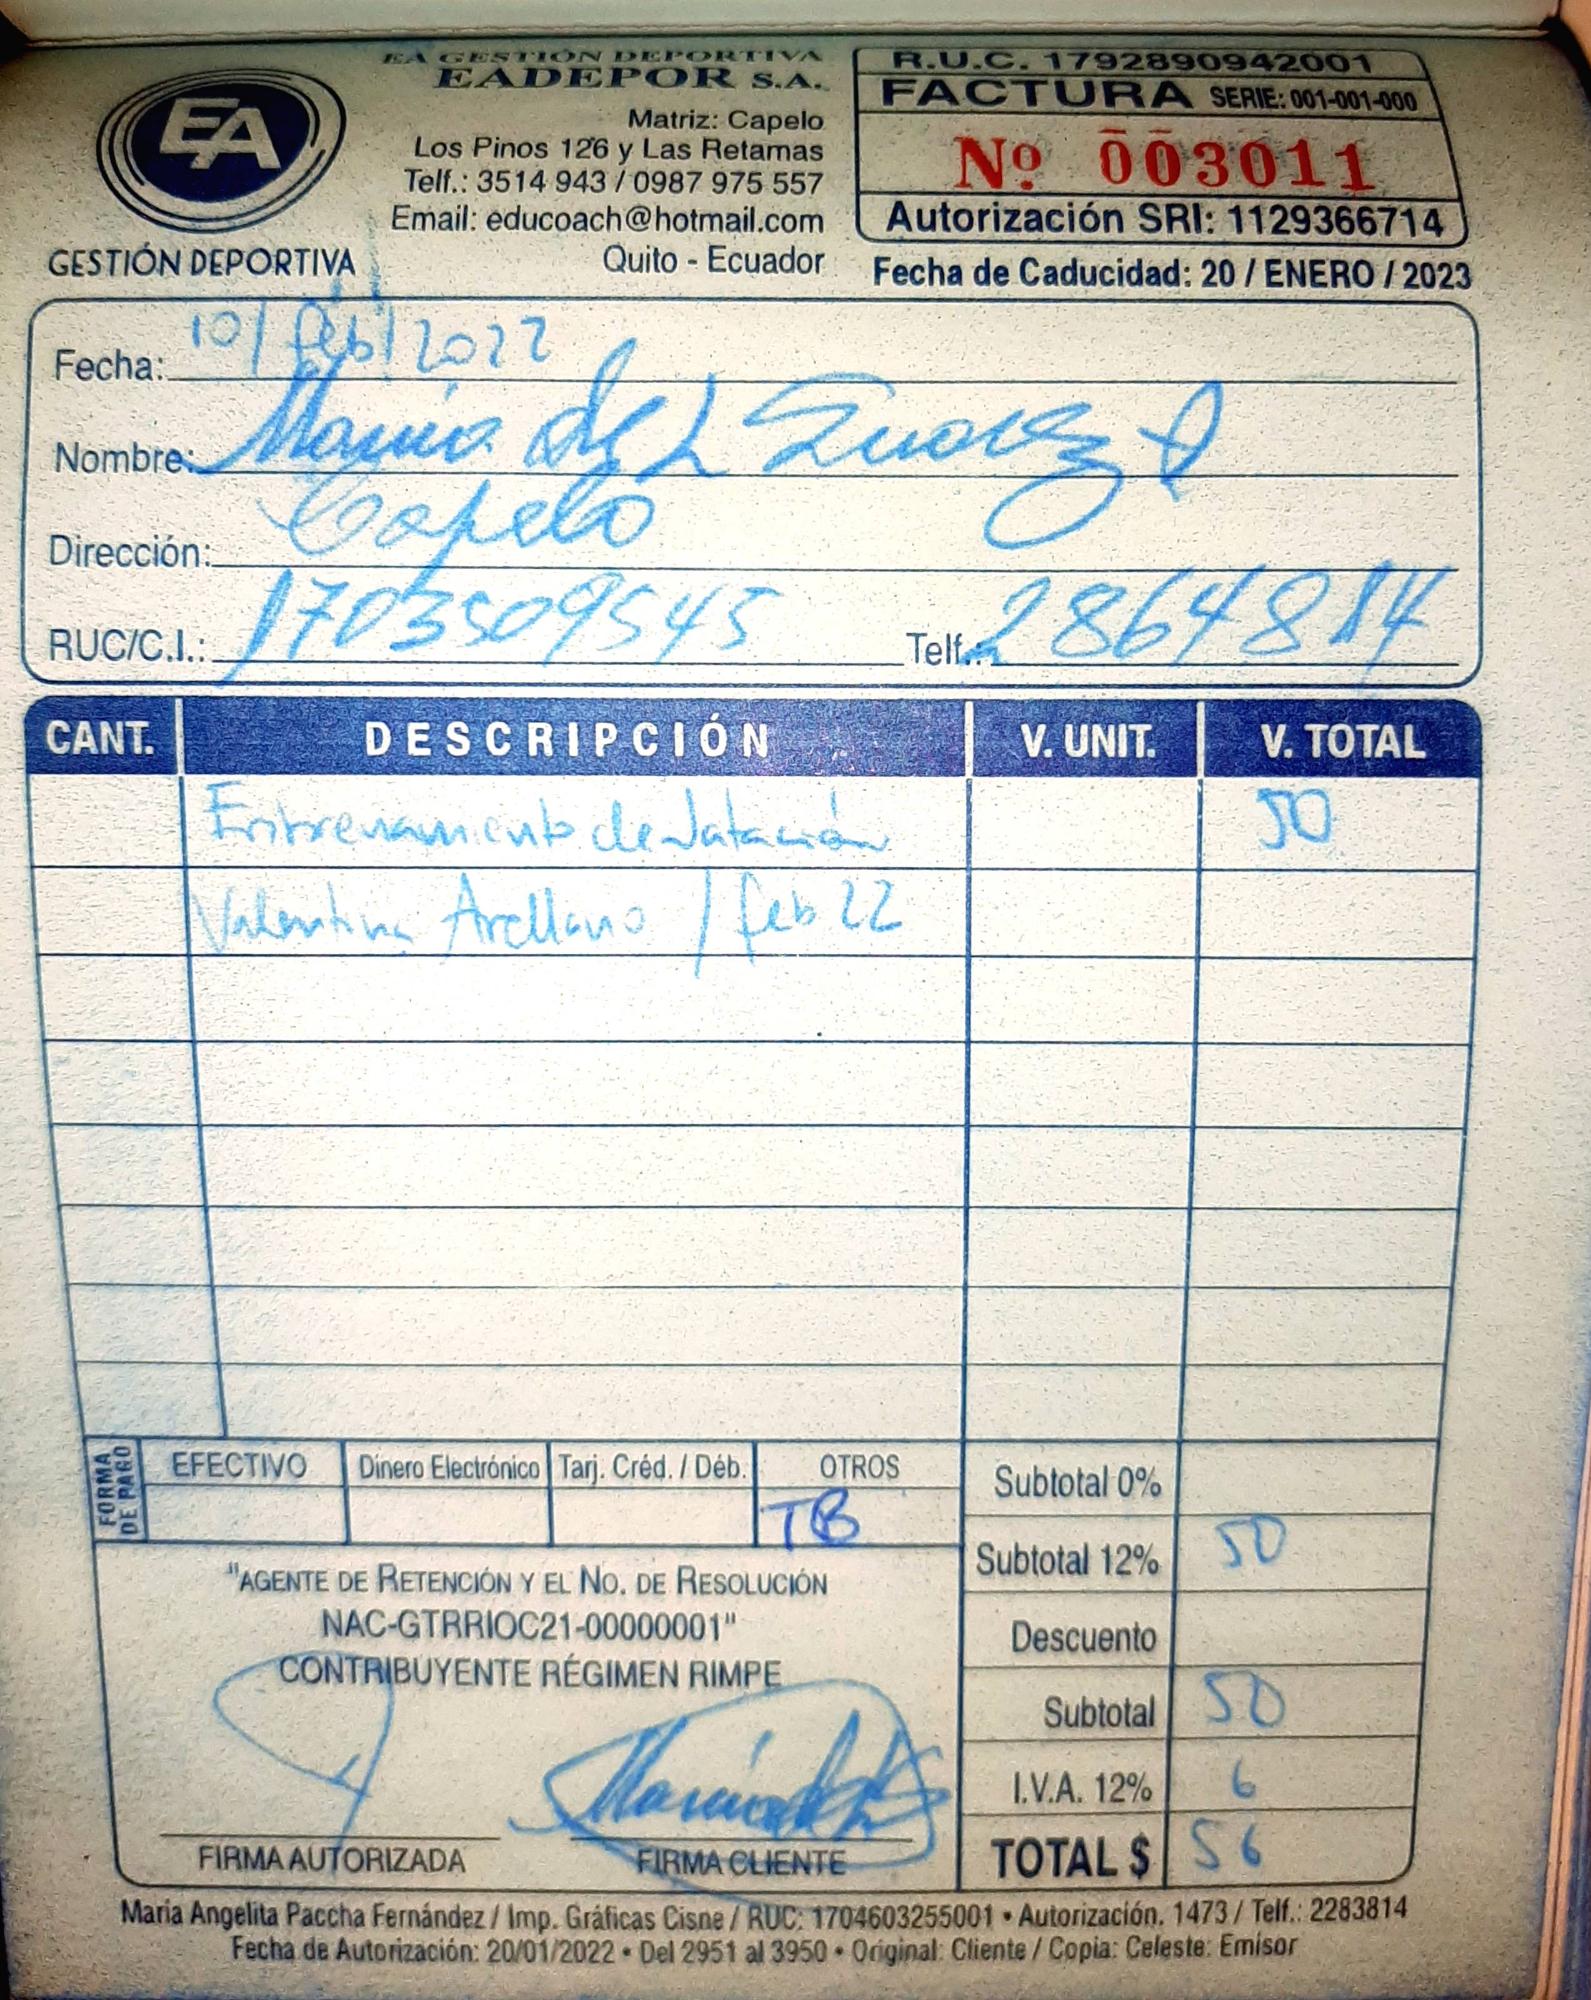 EA GESTIÓN DEPORTIVA
EADEPOR S.A.
EA
GESTIÓN DEPORTIVA
Matriz: Capelo
Los Pinos 126 y Las Retamas
Telf.: 3514 943 / 0987 975 557
Email: educoach@hotmail.com
Quito - Ecuador
R.U.C. 1792890942001
FACTURA SERIE: 001-001-000
Nº 003011
Autorización SRI: 1129366714
Fecha de Caducidad: 20 / ENERO / 2023
Fecha: 10/feb/2022
Nombre: María de L Suarez
Dirección: Capelo
RUC/C.I.: 1703509545 Telf.: 2864814
CANT. DESCRIPCIÓN V. UNIT. V. TOTAL
Entrenamiento de Natación 50
Valentina Arellano / feb 22
FORMA DE PAGO
EFECTIVO Dinero Electrónico Tarj. Créd. / Déb. OTROS
TB
Subtotal 0%
Subtotal 12% 50
Descuento
Subtotal 50
I.V.A. 12% 6
TOTAL $ 56
"AGENTE DE RETENCIÓN Y EL NO. DE RESOLUCIÓN
NAC-GTRRIOC21-00000001"
CONTRIBUYENTE RÉGIMEN RIMPE
FIRMA AUTORIZADA FIRMA CLIENTE
María Angelita Paccha Fernández / Imp. Gráficas Cisne / RUC: 1704603255001 • Autorización. 1473 / Telf.: 2283814
Fecha de Autorización: 20/01/2022 • Del 2951 al 3950 • Original: Cliente / Copia: Celeste: Emisor